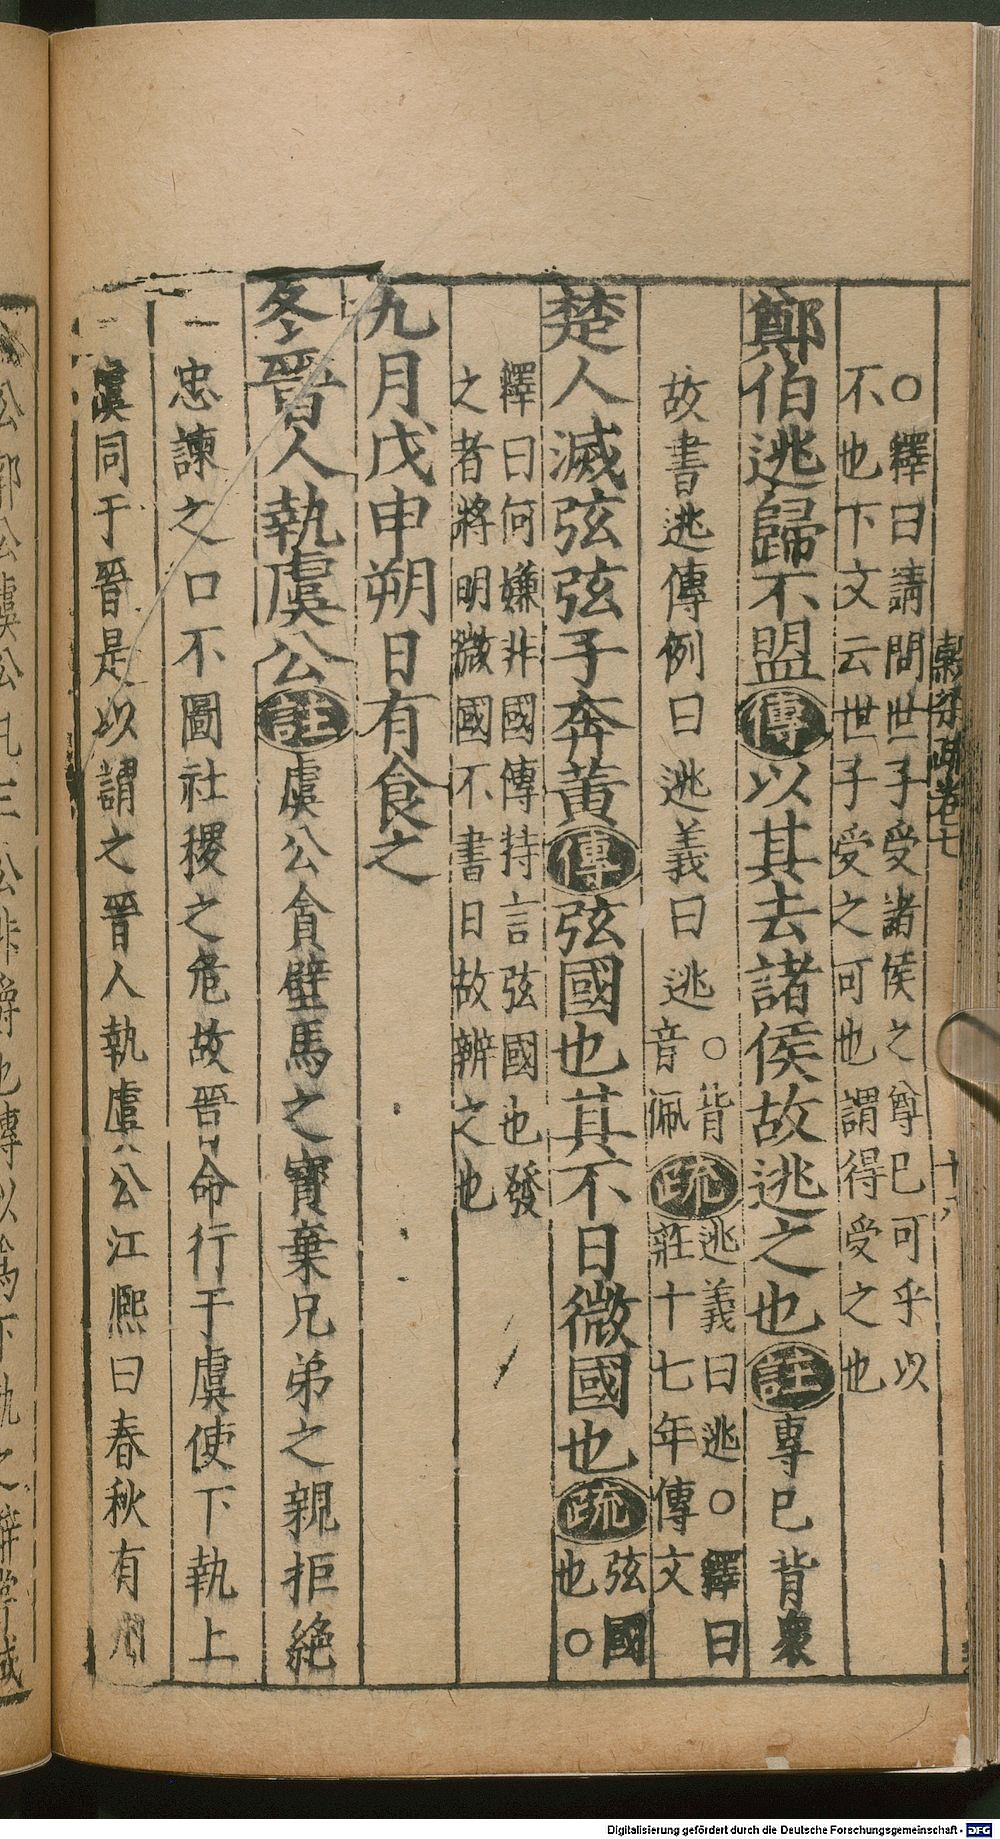 ○釋曰請問世子受諸侯之尊已可乎以
不也下文云世子受之可也謂得受之也
鄭伯逃歸不盟傳以其去諸侯故逃之也註專已背衆
故書逃傳例曰逃義曰逃○背音佩疏逃義曰逃○釋曰莊十七年傳文
楚人滅弦弦子奔黃傳弦國也其不日微國也疏弦國也○
釋曰何嫌非國傳持言弦國也發
之者將明微國不書日故辨之也
九月戊申朔日有食之
冬晉人執虞公註虞公貪璧馬之寶棄兄弟之親拒絶
忠諫之口不圖社稷之危故晉命行于虞使下執上
虞同于晉是以謂之晉人執虞公江熈曰春秋有州
公郭公虞公凡三公非爵也傳以爲下執之辭
Digitalisierung gefördert durch die Deutsche Forschungsgemeinschaft - DFG